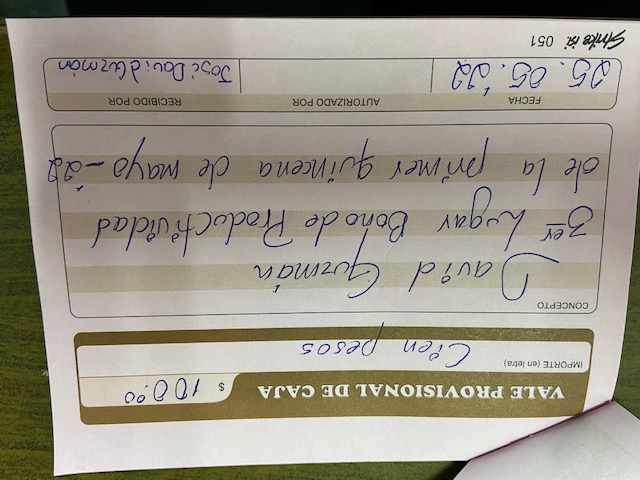 VALE PROVISIONAL DE CAJA
$ 100.00
IMPORTE (en letra)
Cien pesos
CONCEPTO
David Guzmán
3er Lugar Bono de Productividad
de la primer quincena de mayo-22
FECHA
AUTORIZADO POR
RECIBIDO POR
25.05.'22
José David Guzmán
051